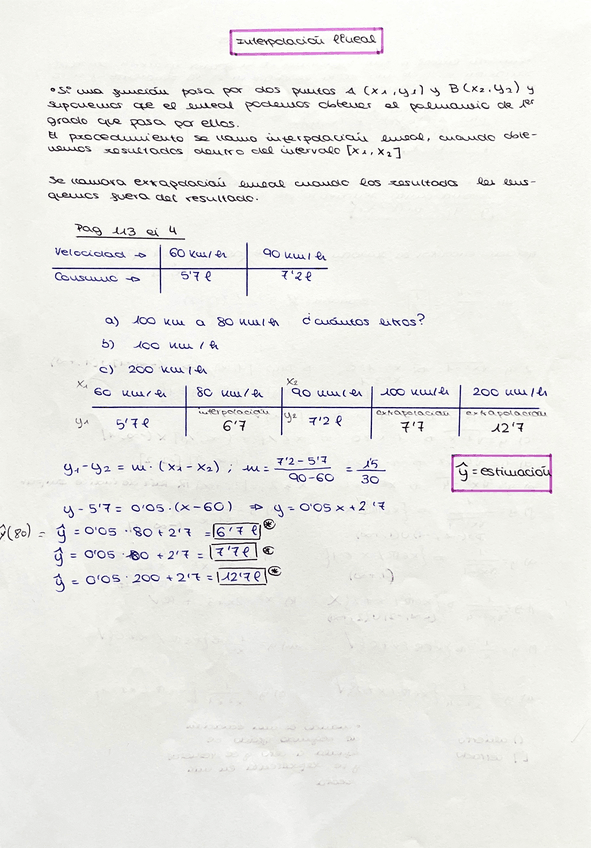 Interpolación lineal
• Si una función pasa por dos puntos A (x1, y1) y B (x2, y2) y
suponemos que el lineal podemos obtener el polinomio de 1er
grado que pasa por ellos.
El procedimiento se llama interpolación lineal, cuando obte-
nemos resultados dentro del intervalo [x1, x2]
Se llamara extrapolación lineal cuando los resultados los bus-
quemos fuera del resultado.
Pag 113 ej 4
Velocidad → 60 km/h 90 km/h
Consumo → 5'7 l 7'2 l
a) 100 km a 80 km/h ¿cuántos litros?
b) 100 km/h
c) 200 km/h
x1 60 km/h 80 km/h x2 90 km/h 100 km/h 200 km/h
y1 5'7 l interpolación 6'7 y2 7'2 l extrapolación 7'7 extrapolación 12'7
y1 - y2 = m · (x1 - x2) ; m = 7'2 - 5'7 / 90 - 60 = 1'5 / 30
ŷ = estimación
y - 5'7 = 0'05 · (x - 60) ⇒ y = 0'05 x + 2'7
ŷ(80) = ŷ = 0'05 · 80 + 2'7 = 6'7 l *
ŷ = 0'05 · 00 + 2'7 = 7'7 l *
ŷ = 0'05 · 200 + 2'7 = 12'7 l *